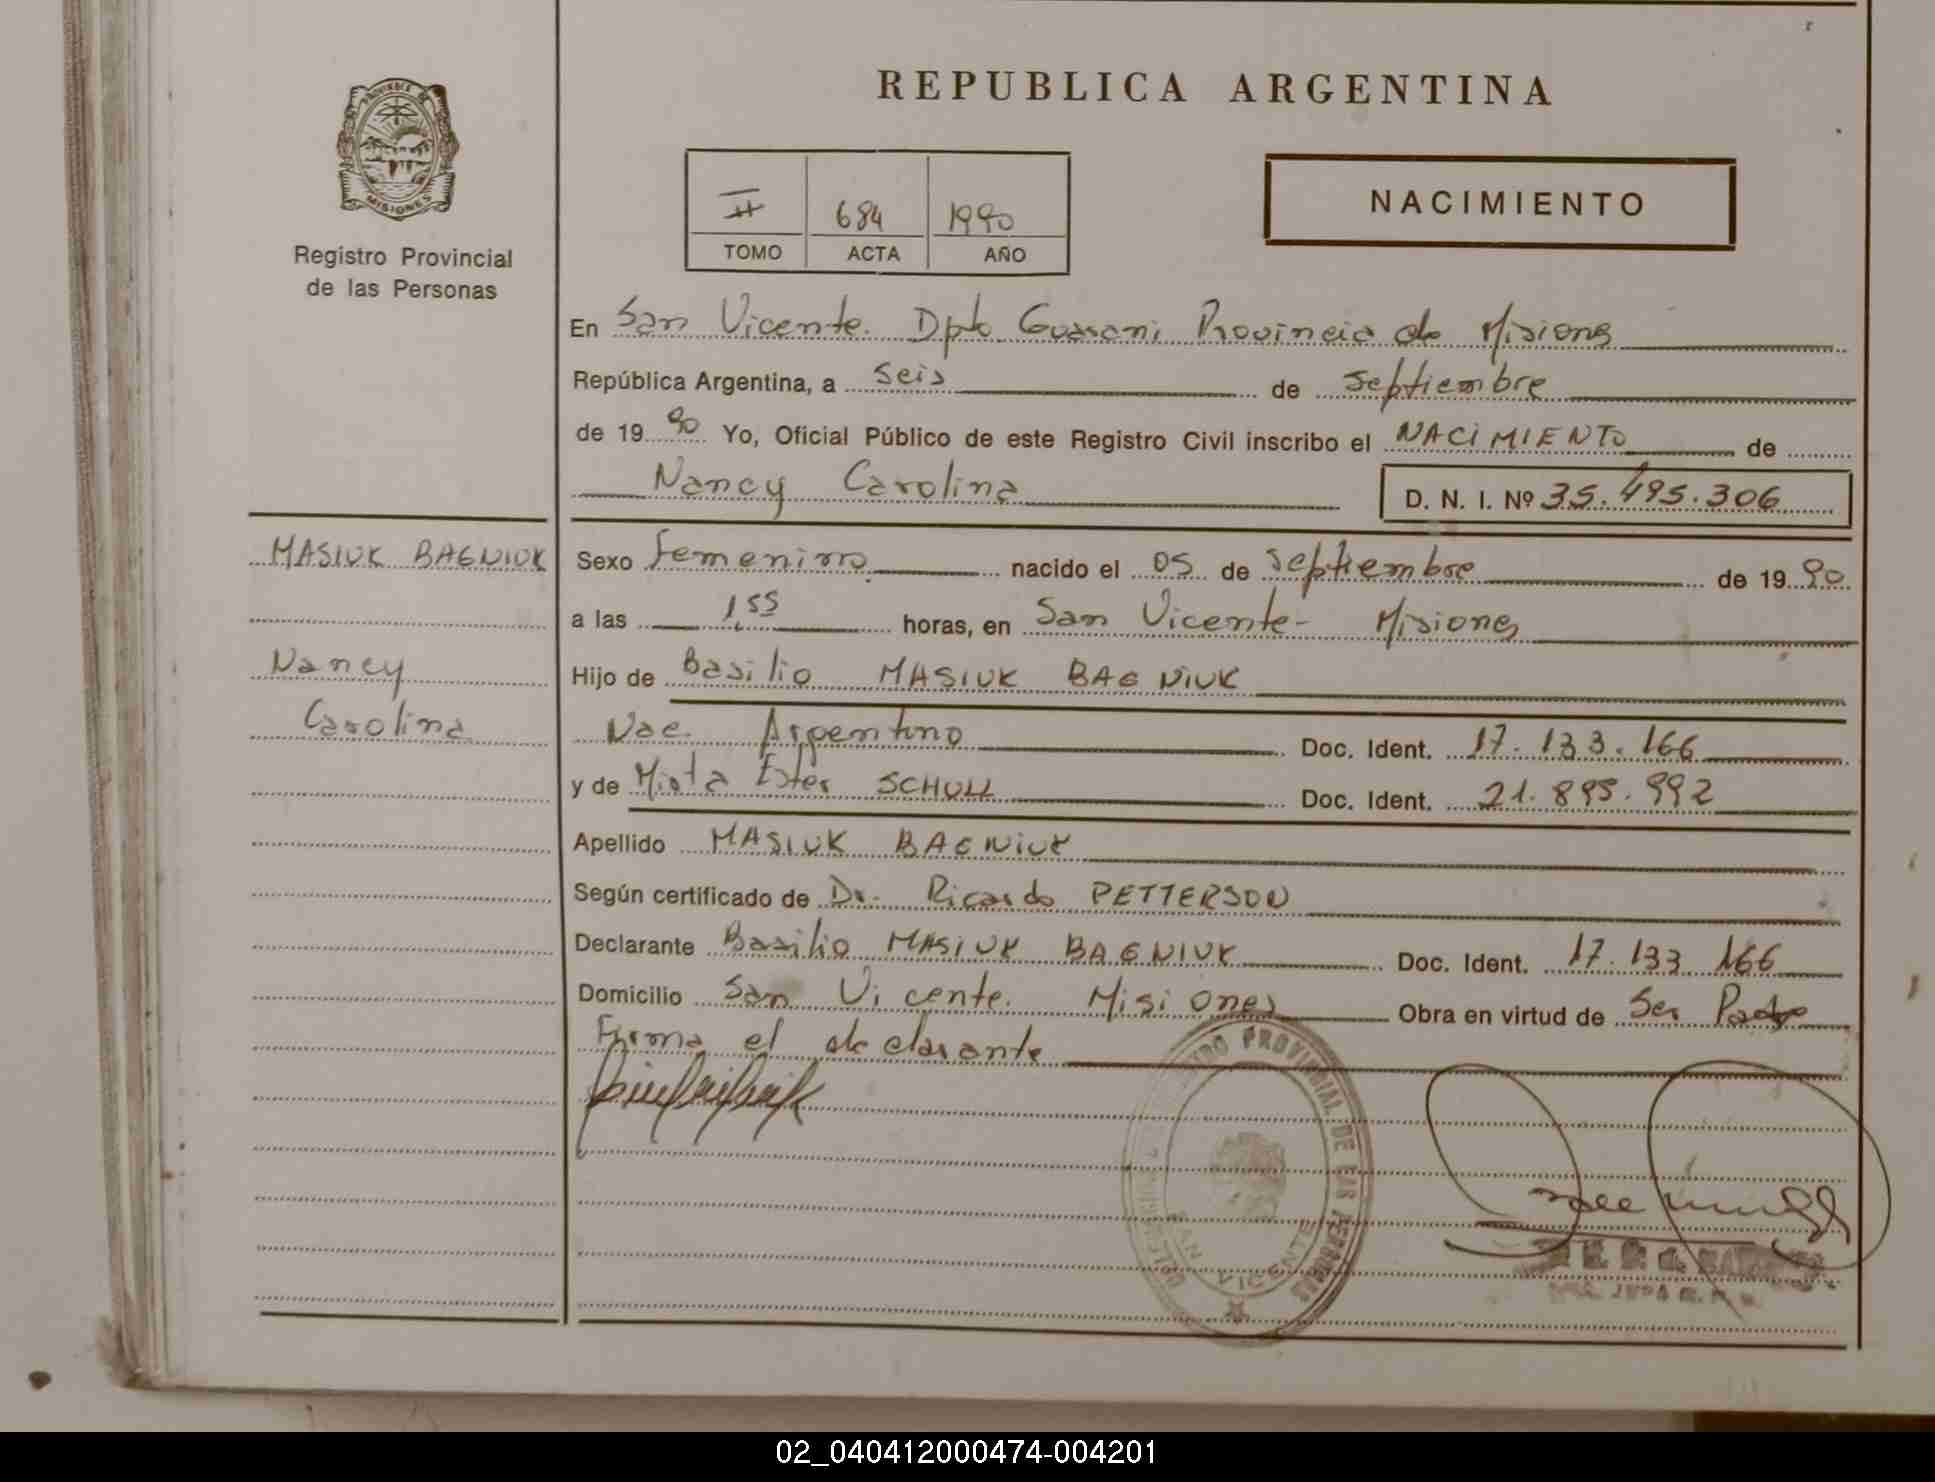 REPUBLICA ARGENTINA
MISIONES
Registro Provincial
de las Personas
II 684 1990
TOMO ACTA AÑO
NACIMIENTO
En San Vicente. Dpto Guarani Provincia de Misiones
República Argentina, a seis de septiembre
de 19 90 Yo, Oficial Público de este Registro Civil inscribo el NACIMIENTO de
Nancy Carolina D. N. I. Nº 35.495.306
MASIUK BAGNIUK
Nancy
Carolina
Sexo Femenino nacido el 05 de septiembre de 19 90
a las 1,55 horas, en San Vicente - Misiones
Hijo de Basilio MASIUK BAGNIUK
Nac. Argentino Doc. Ident. 17.133.166
y de Mirta Ester SCHULL Doc. Ident. 21.895.992
Apellido MASIUK BAGNIUK
Según certificado de Dr. Ricardo PETTERSON
Declarante Basilio MASIUK BAGNIUK Doc. Ident. 17.133.166
Domicilio San Vicente. Misiones Obra en virtud de Ser Padre
Firma el declarante
PROVINCIAL DE LAS PERSONAS
VICENTE
02_040412000474-004201